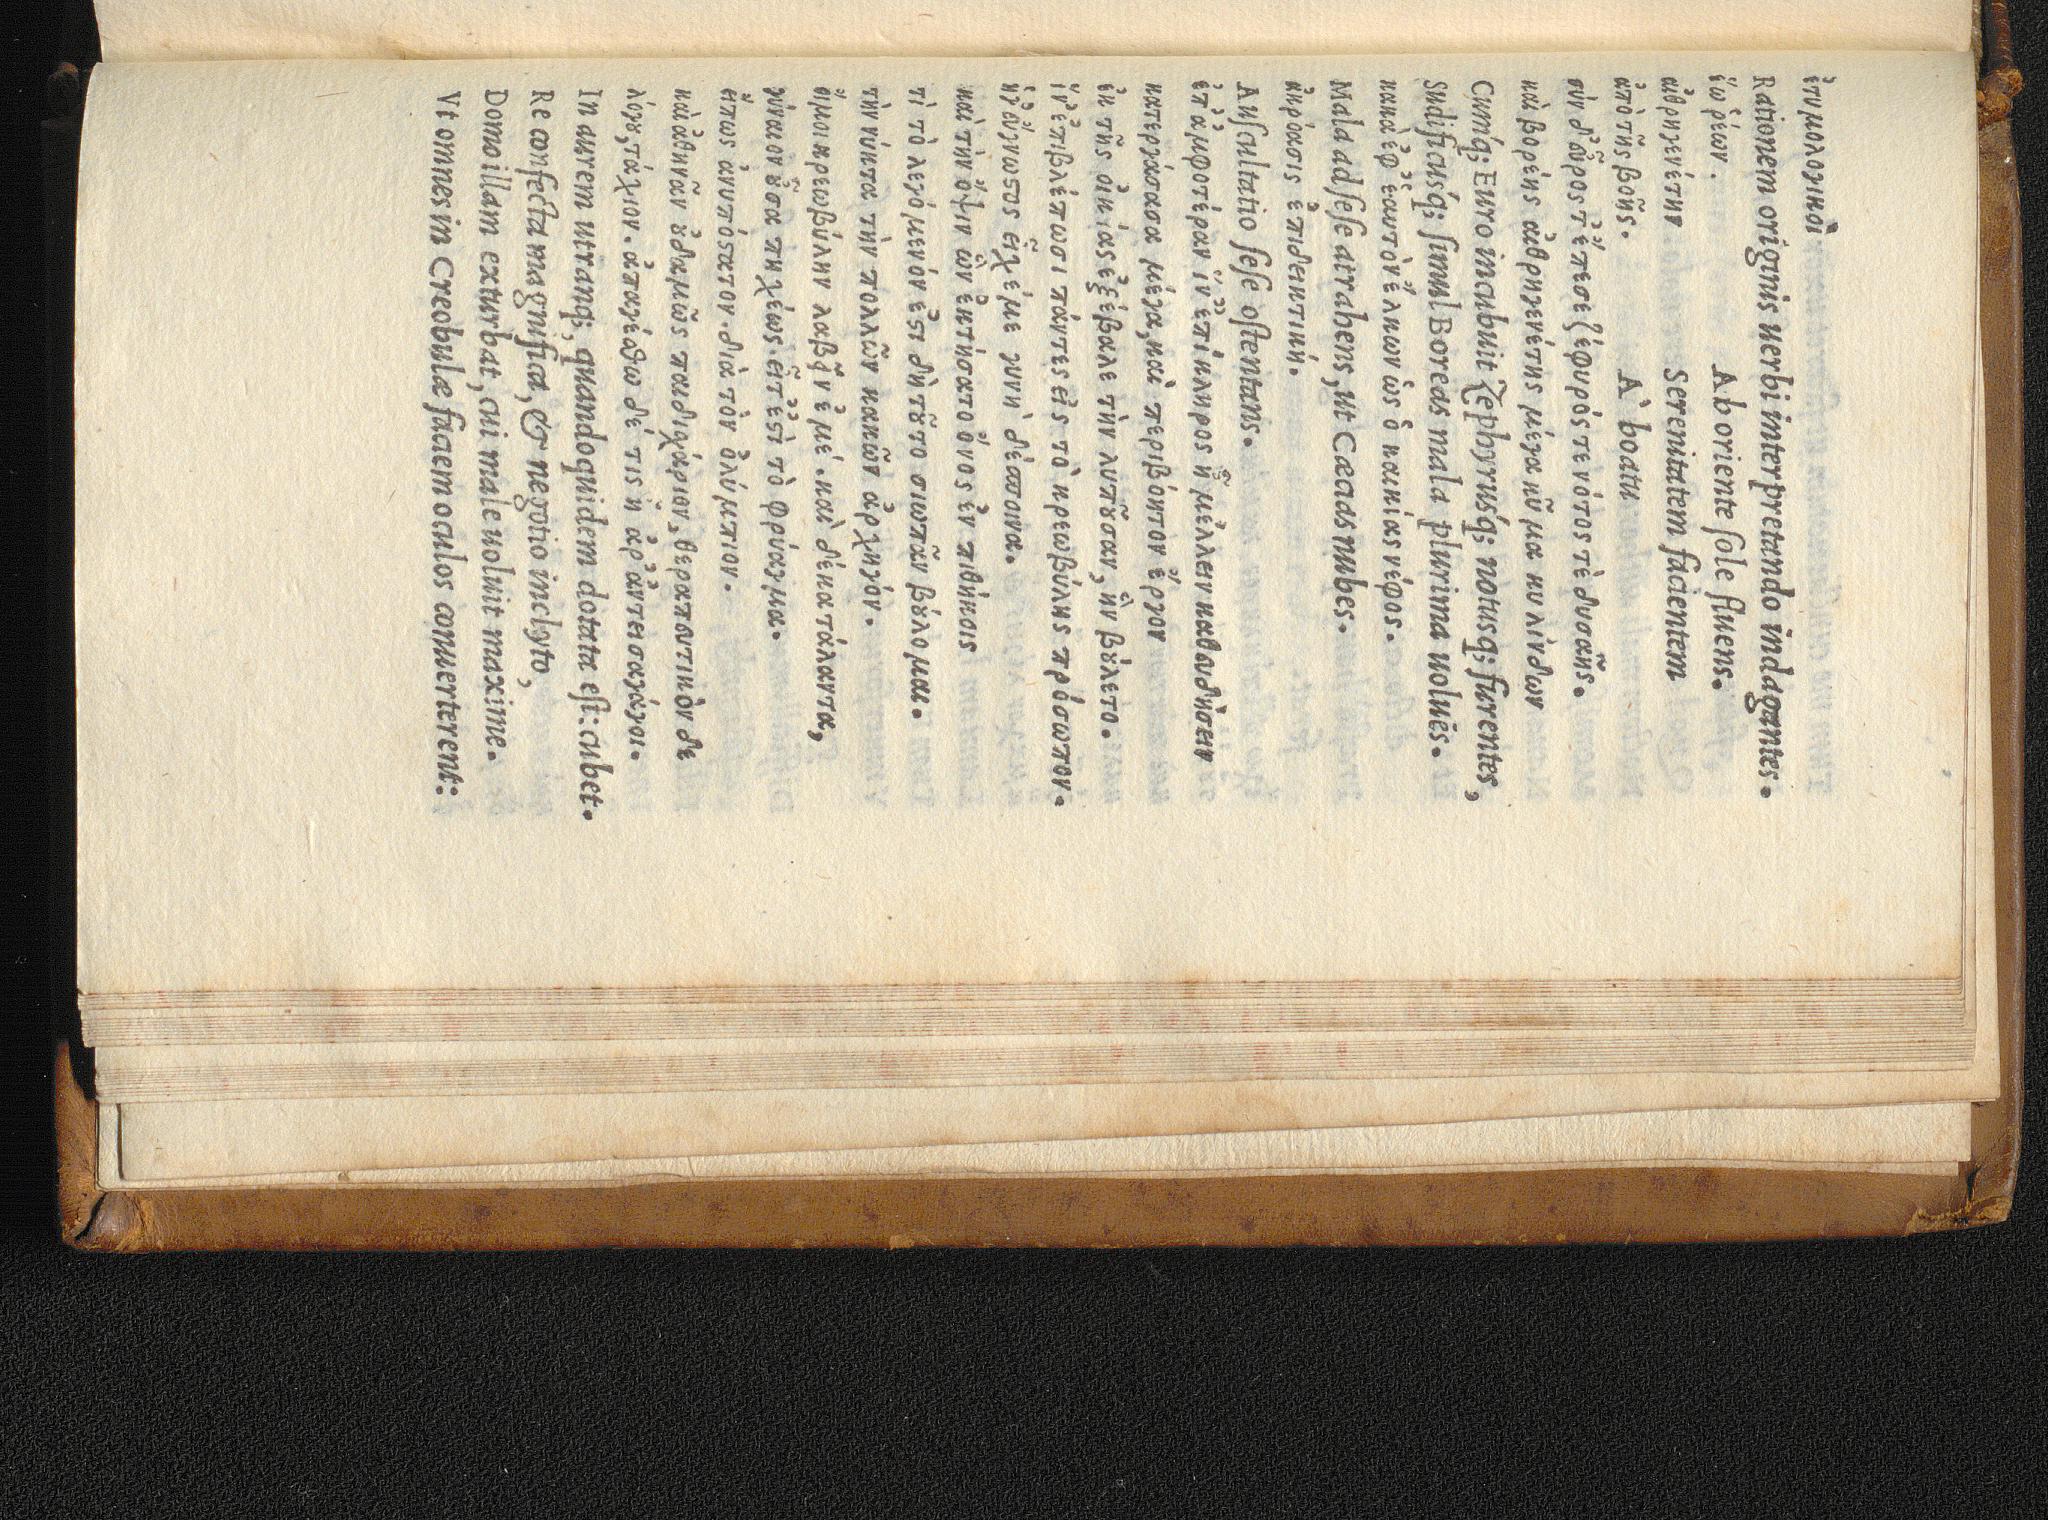 ἐτυμολογικοὶ
Rationem originis uerbi interpretando indagantes.
ἕω ῥέων. Ab oriente sole fluens.
αἰθρηγενέτην Serenitatem facientem
ἀπὸ τῆς βοῆς. A' boatu
σὺν δ' εὖρος τ' ἔπεσε ζέφυρός τε νότος τὲ δυσαὴς.
καὶ βορέης αἰθρηγενέτης μέγα κῦμα κυλίνδων
Cumq́; Euro incubuit Zephyrusq́; notusq́; furentes,
Sudificusq́; simul Boreas mala plurima uoluēs.
κακὰ ἐφ' ἑαυτὸν ἕλκων ὡς ὁ καικίας νέφος.
Mala ad sese attrahens, ut Cæcias nubes.
ἀκρόασις ἐπιδεικτική.
Auscultatio sese ostentans.
ἐπ' ἀμφοτέραν ἵν' ἐπίκληρος ἡ μέλλειν καθευδήσειν
κατεργάσασα μέγα, καὶ περιβόητον ἔργον
ἐκ τῆς οἰκίας ἐξέβαλε τὴν λυποῦσαν, ἣν βούλετο.
ἵν' ἐπιβλέπωσι πάντες εἰς τὸ κρεωβύλης πρόσωπον.
κ' εὔγνωστος εἶχέ με γυνὴ δέσποινα.
καὶ τὴν ὄψιν ὣν ἐκτήσατο ὄνος ἐν πιθήκοις
τὶ τὸ λεγόμενόν ἐστ δὴ τοῦτο σιωπᾶν βούλομαι.
τὴν νύκτα τὴν πολλῶν κακῶν ἀρχηγόν.
οἴμοι κρεωβύλην λαβεῖν ἐμέ. καὶ δέκα τάλαντα,
γύναιον οὖσα πηχέως. εἶτ' ἐστὶ τὸ φρύαγμα.
εἴπως ἀνυπόστατον. διὰ τὸν ὀλύμπιον.
καὶ ἀθηνᾶν οὐδαμῶς παιδιχάριον, θεραπευτικὸν δὲ
λόγου, τάχιον. ἀπαγέσθω δέ τις ἢ ἄρ' ἀντεισαγάγοι.
In aurem utranq;, quandoquidem dotata est: cubet.
Re confecta magnifica, & negotio inclyto,
Domo illam exturbat, cui male uoluit maxime.
Vt omnes in Creobulæ faciem oculos conuerterent: